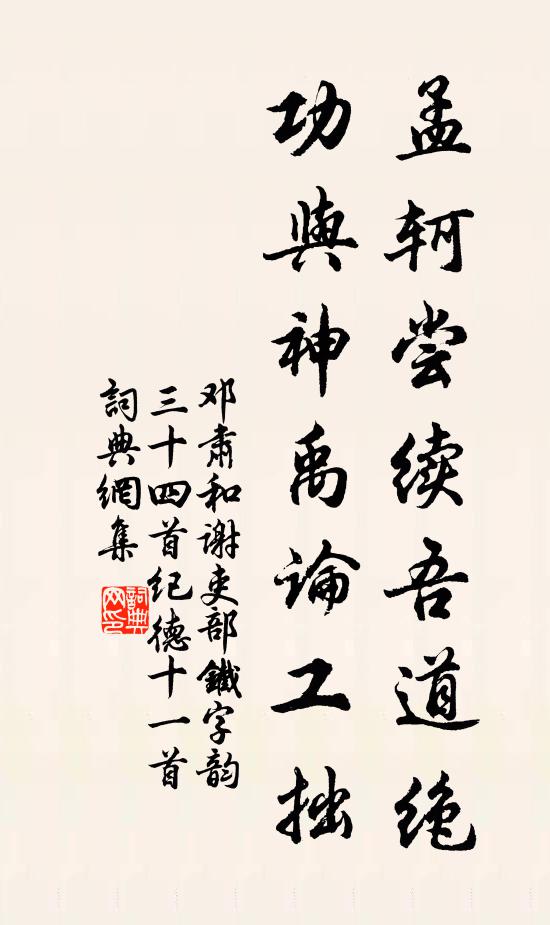 孟轲尝续吾道绝
功與神禹論工拙
邓肃和谢吏部鐵字韵
三十四首纪德十一首
詞典網集
詞典网印